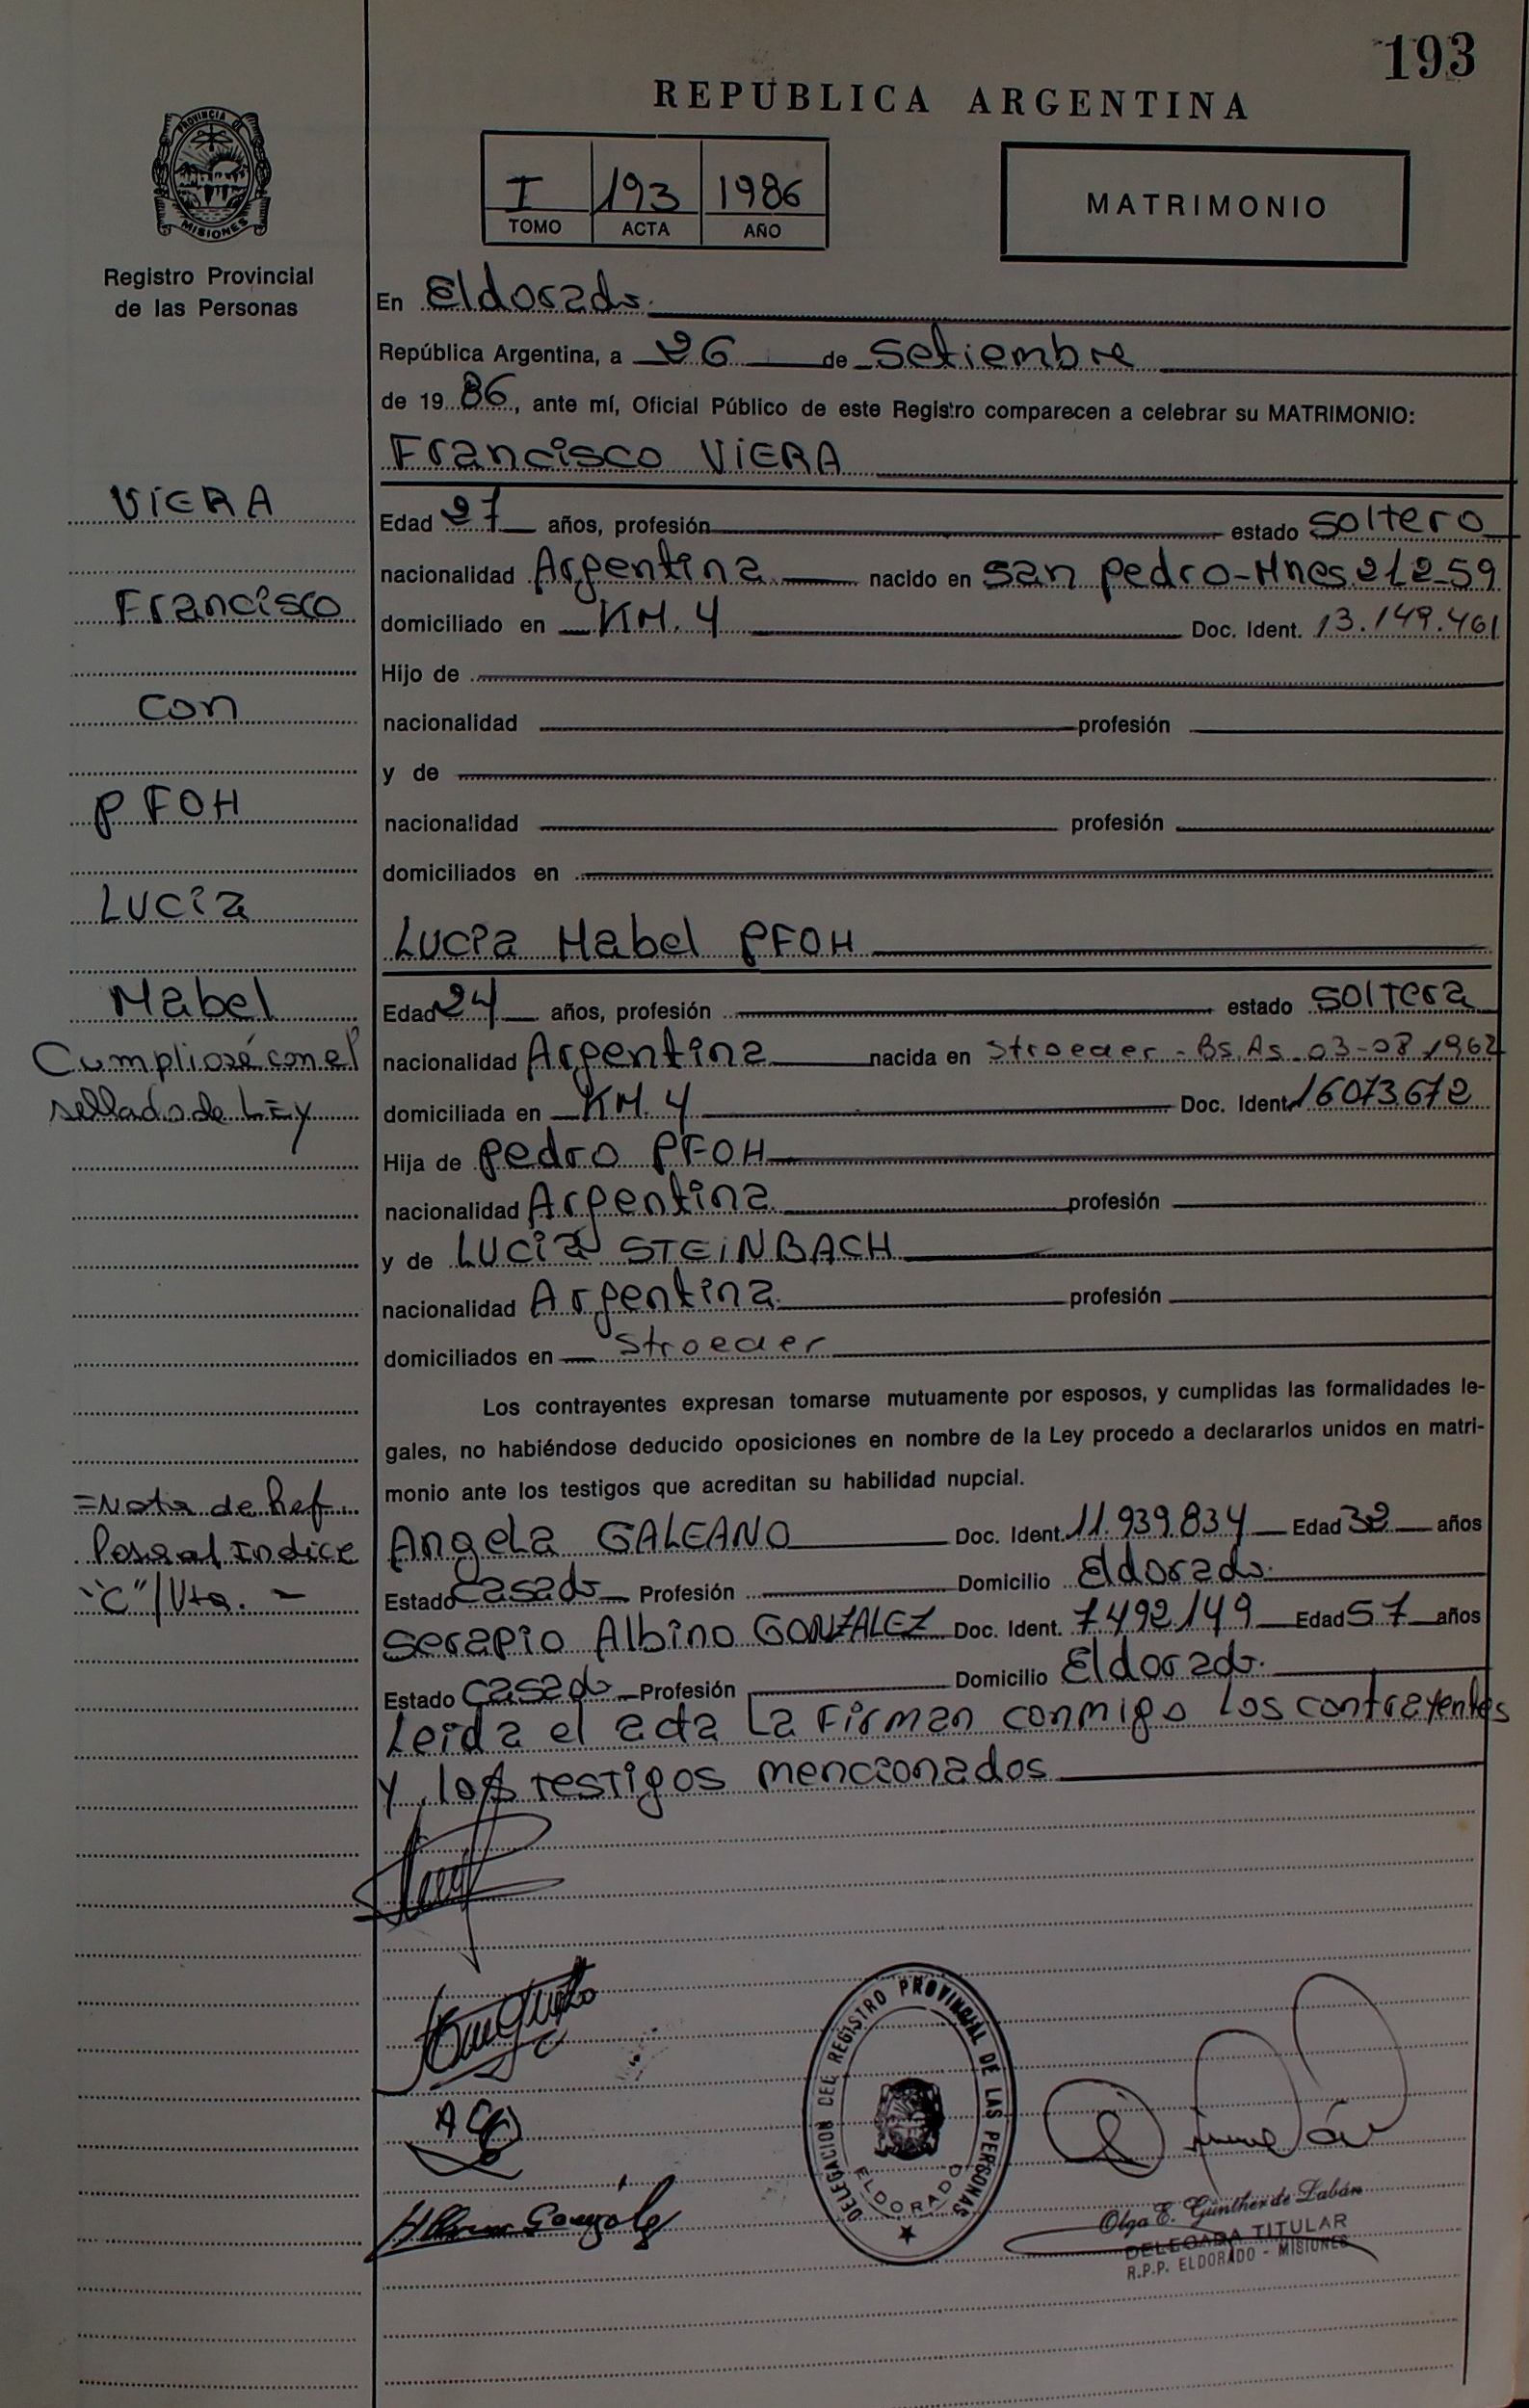 193
REPUBLICA ARGENTINA
PROVINCIA DE
MISIONES
I 193 1986
TOMO ACTA AÑO
MATRIMONIO
Registro Provincial
de las Personas
En Eldorado.
República Argentina, a 26 de Setiembre
de 19 86, ante mí, Oficial Público de este Registro comparecen a celebrar su MATRIMONIO:
Francisco VIERA
VIERA
Edad 27 años, profesión estado soltero
nacionalidad Argentina nacido en san pedro-Mnes 2/2-59
Francisco
domiciliado en KM. 4 Doc. Ident. 13.149.461
Hijo de
con
nacionalidad profesión
y de
PFOH
nacionalidad profesión
domiciliados en
Lucía
Lucia Mabel PFOH
Mabel
Edad 24 años, profesión estado soltera
Cumpliose con el
nacionalidad Argentina nacida en Stroeder - Bs. As. 03-08-1962
sellado de LEy
domiciliada en KM. 4 Doc. Ident. 16073.672
Hija de pedro PFOH
nacionalidad Argentina profesión
y de Lucía STEINBACH
nacionalidad Argentina. profesión
domiciliados en Stroeder
Los contrayentes expresan tomarse mutuamente por esposos, y cumplidas las formalidades le-
gales, no habiéndose deducido oposiciones en nombre de la Ley procedo a declararlos unidos en matri-
monio ante los testigos que acreditan su habilidad nupcial.
=Nota de Ref.
Angela GALEANO Doc. Ident. 11.939.834 Edad 32 años
Pasa al Indice
Estado casado Profesión Domicilio Eldorado.
"C"/Vta. -
Serapio Albino GONZALEZ Doc. Ident. 7.492.149 Edad 57 años
Estado casado Profesión Domicilio Eldorado.
Leida el acta La Firman conmigo los contrayentes
y los testigos mencionados
DELEGACION DEL REGISTRO PROVINCIAL DE LAS PERSONAS
ELDORADO
Olga E. Günther de Labán
DELEGADA TITULAR
R.P.P. ELDORADO - MISIONES